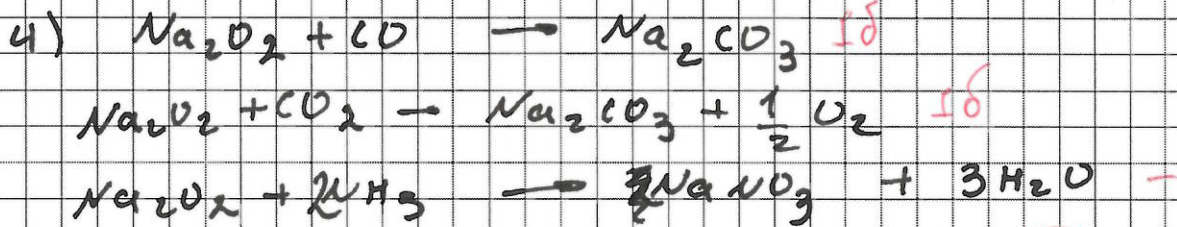 4) Na₂O₂ + CO → Na₂CO₃ 1б
Na₂O₂ + CO₂ → Na₂CO₃ + 1/2 O₂ 1б
Na₂O₂ + 2NH₃ → 2NaNO₃ + 3H₂O −